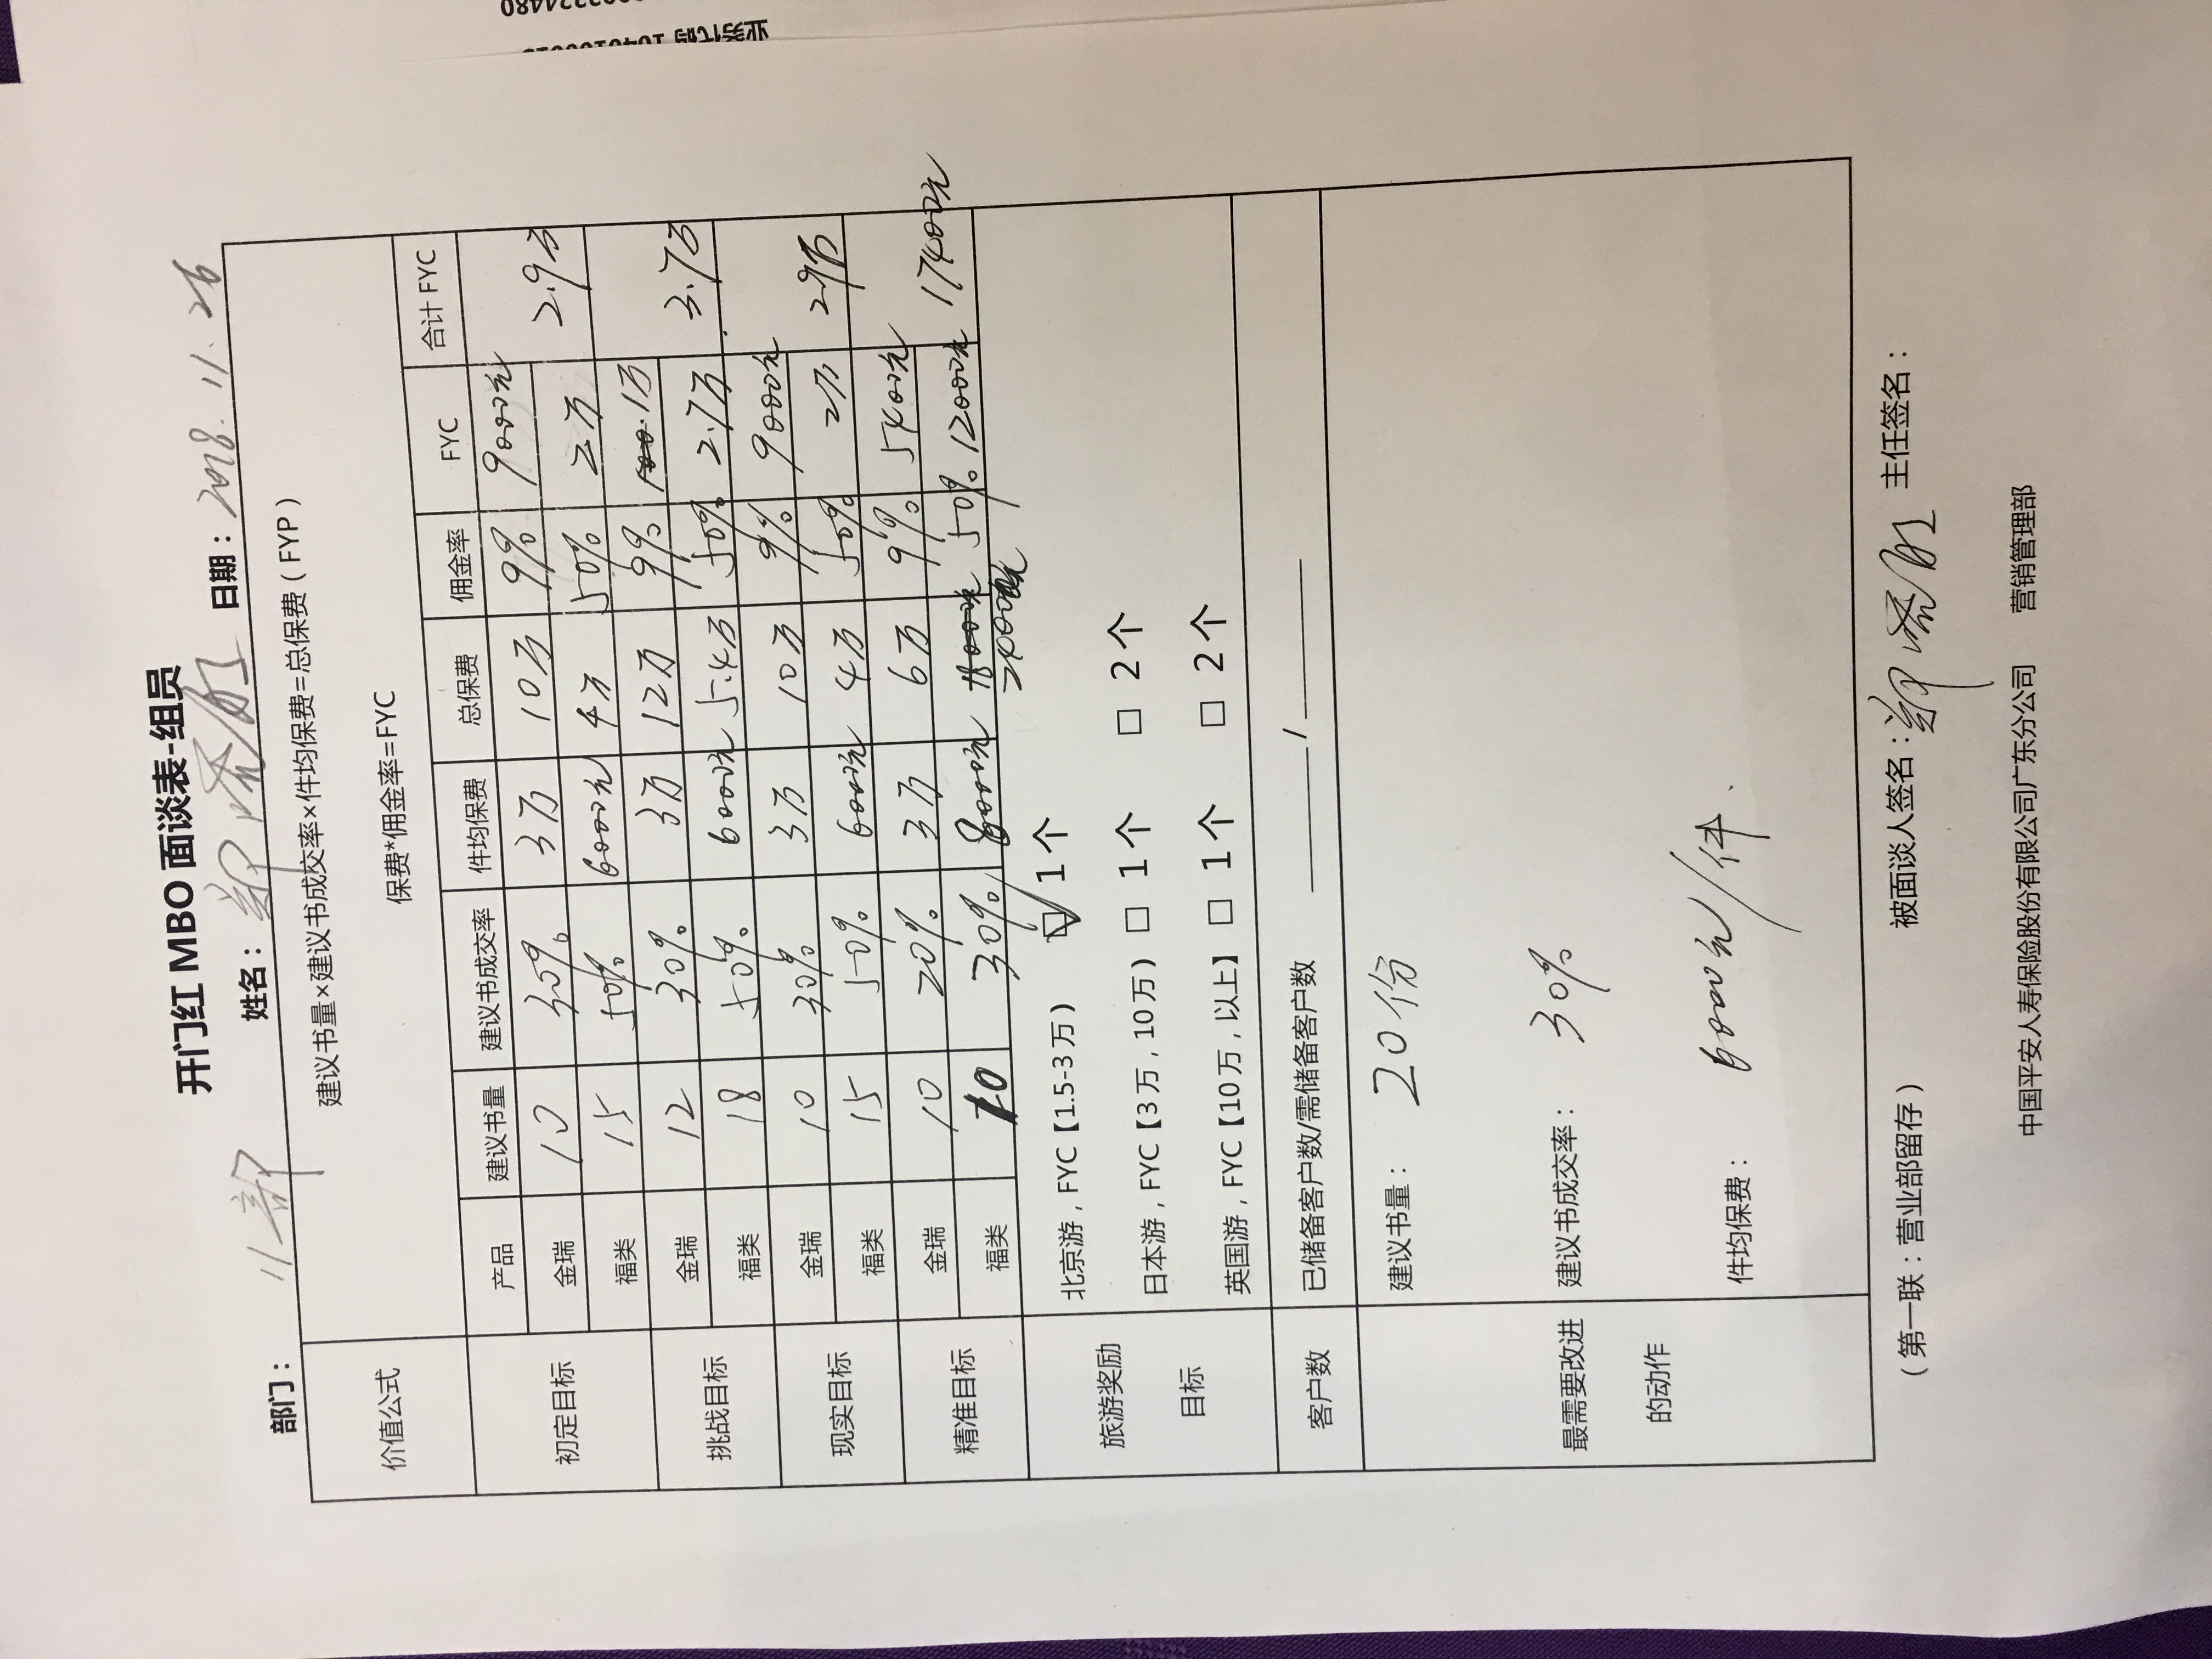 业务代码
开门红 MBO 面谈表-组员
部门： 姓名： 日期：2018.11.26
价值公式 建议书量×建议书成交率×件均保费=总保费（FYP）
保费*佣金率=FYC
产品 建议书量 建议书成交率 件均保费 总保费 佣金率 FYC 合计 FYC
初定目标 金瑞 10 30% 3万 10万 9% 9000元 2.9万
福类 15 50% 6000元 4万 50% 2万
挑战目标 金瑞 12 30% 3万 12万 9% 1万 3.7万
福类 18 50% 6000元 5.4万 50% 2.7万
现实目标 金瑞 10 30% 3万 10万 9% 9000元 2.9万
福类 15 50% 6000元 4万 50% 2万
精准目标 金瑞 10 20% 3万 6万 9% 5400元 17400元
福类 10 30% 8000元 24000元 50% 12000元
旅游奖励目标 北京游，FYC【1.5-3万） ☑ 1个
日本游，FYC【3万，10万） □ 1个 □ 2个
英国游，FYC【10万，以上】 □ 1个 □ 2个
客户数 已储备客户数/需储备客户数 ______/______
最需要改进的动作 建议书量： 20份
建议书成交率： 30%
件均保费： 6000元/件.
（第一联：营业部留存） 被面谈人签名： 主任签名：
中国平安人寿保险股份有限公司广东分公司 营销管理部